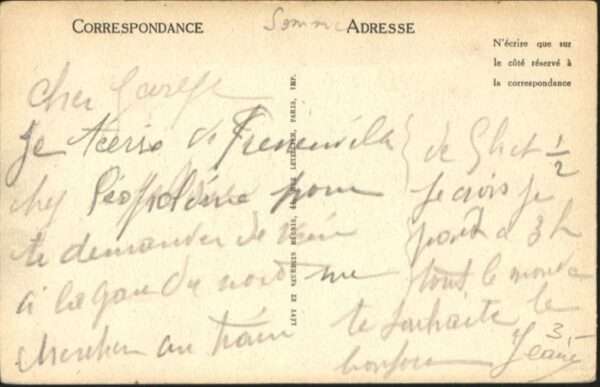 CORRESPONDANCE
Somme
ADRESSE
N'écrire que sur
le côté réservé à
la correspondance
cher
Je técris de Freneville
chez Léopoldine pour
te demander de venir
à la gare du nord me
chercher au train
de 5h et 1/2
je crois je
part a 3h
tout le monde
te souhaite le
bonjour Jeanne
3,-
LÉVY ET NEURDEIN RÉUNIS, 44, RUE LETELLIER, PARIS, IMP.